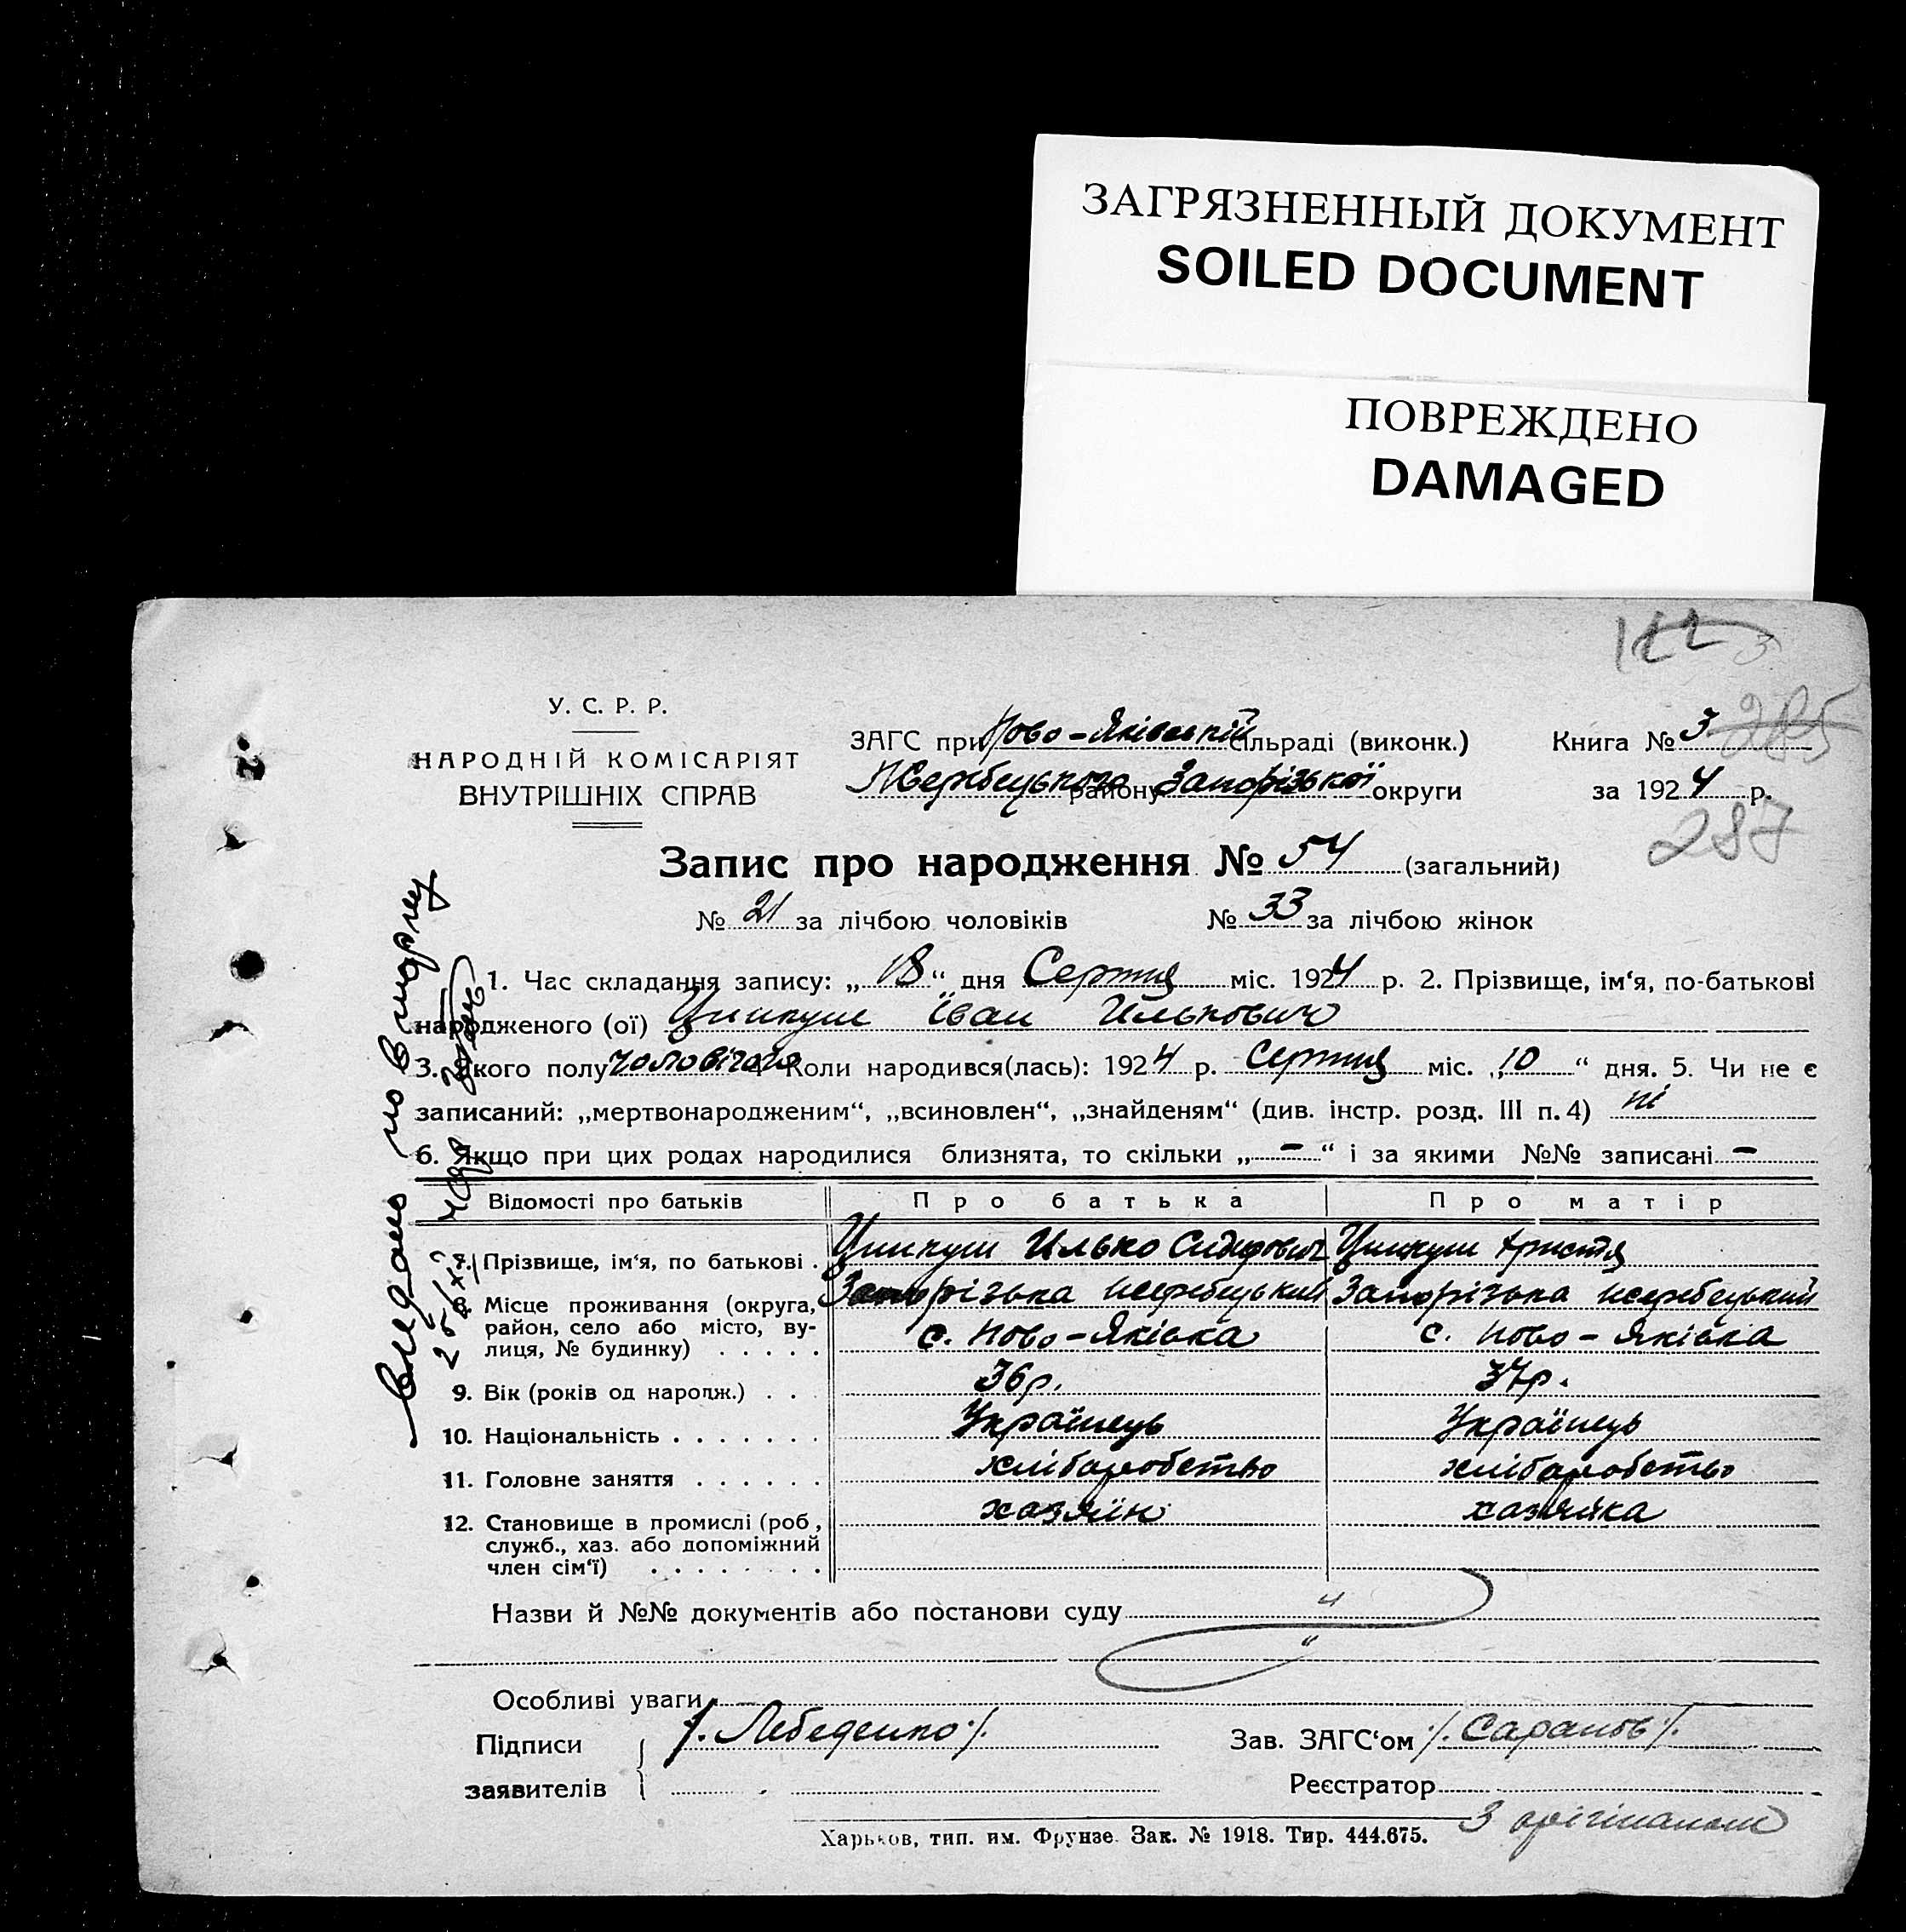 ЗАГРЯЗНЕННЫЙ ДОКУМЕНТ
SOILED DOCUMENT
ПОВРЕЖДЕНО
DAMAGED
У. С. Р. Р.
НАРОДНІЙ КОМІСАРІЯТ
ВНУТРІШНІХ СПРАВ
ЗАГС при Ново-Яківській сільраді (виконк.)
Жеребецького району Запорізької округи
Книга № 3 285
за 1924 р.
287
Запис про народження № 54 (загальний)
№ 21 за лічбою чоловіків № 33 за лічбою жінок
1. Час складання запису: „18“ дня Серпня міс. 1924 р. 2. Прізвище, ім‘я, по-батькові
народженого (ої) Цимкуш Іван Илькович
3. Якого полу чоловічого Коли народився(лась): 1924 р. Серпня міс. „10“ дня. 5. Чи не є
записаний: „мертвонародженим“, „всиновлен“, „знайденям“ (див. інстр. розд. III п. 4) ні
6. Якщо при цих родах народилися близнята, то скільки „ – “ і за якими №№ записані –
Відомості про батьків Про батька Про матір
7. Прізвище, ім‘я, по батькові . Цимкуш Илько Сидорович Цимкуш Христя
8. Місце проживання (округа, Запорізька жеребецький Запорізька жеребецький
район, село або місто, ву-
лиця, № будинку) . . . . . с. Ново-Яківка с. Ново-Яківка
9. Вік (років од народж.) . . . 36 р. 37 р.
10. Національність . . . . . . . Українець Українець
11. Головне заняття . . . . . . хліборобство хліборобство
12. Становище в промислі (роб., хазяїн хазяйка
служб., хаз. або допоміжний
член сім‘ї) . . . . . . . .
Назви й №№ документів або постанови суду
Особливі уваги
Підписи /. Лебеденко ./.
заявителів
Зав. ЗАГС‘ом /. Саранов ./.
Реєстратор
З орігіналом
Харьков, тип. им. Фрунзе. Зак. № 1918. Тир. 444.675.
Видано повторну